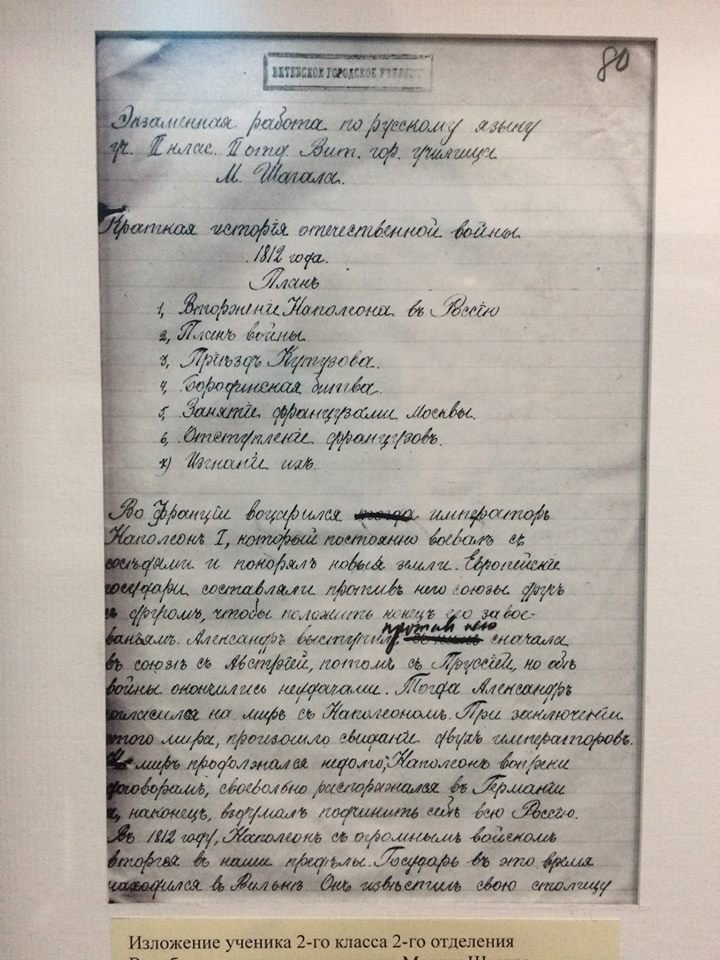 ВИТЕБСКОЕ ГОРОДСКОЕ УЧИЛИЩЕ
80
Экзаменная работа по русскому языку
уч. II клас. II отд. Вит. гор. училища
М. Шагала.
Краткая исторія отечественной войны
1812 года.
Планъ
1, Вторженіе Наполеона въ Россію
2, Планъ войны
3, Пріѣздъ Кутузова.
4, Бородинская битва.
5, Занятіе французами Москвы.
6, Отступленіе французовъ.
7) Изгнаніе ихъ.
Во Франціи воцарился императоръ
Наполеонъ I, который постоянно воевалъ съ
сосѣдями и покорялъ новыя земли. Европейскіе
государи составляли противъ него союзы другъ
съ другомъ, чтобы положить конецъ его завое-
ваньямъ. Александръ выступилъ противъ него сначала
въ союзѣ съ Австріей, потомъ съ Пруссіей, но обѣ
войны окончились неудачами. Тогда Александръ
согласился на миръ съ Наполеономъ. При заключеніи
этого мира, произошло свиданіе двухъ императоровъ.
миръ продолжался недолго; Наполеонъ вопреки
договорамъ, своевольно распоряжался въ Германіи
и, наконецъ, вздумалъ подчинить себѣ всю Россію.
Въ 1812 году, Наполеонъ съ огромнымъ войскомъ
вторгся въ наши предѣлы. Государь въ это время
находился въ Вильнѣ. Онъ извѣстилъ свою столицу
Изложение ученика 2-го класса 2-го отделения